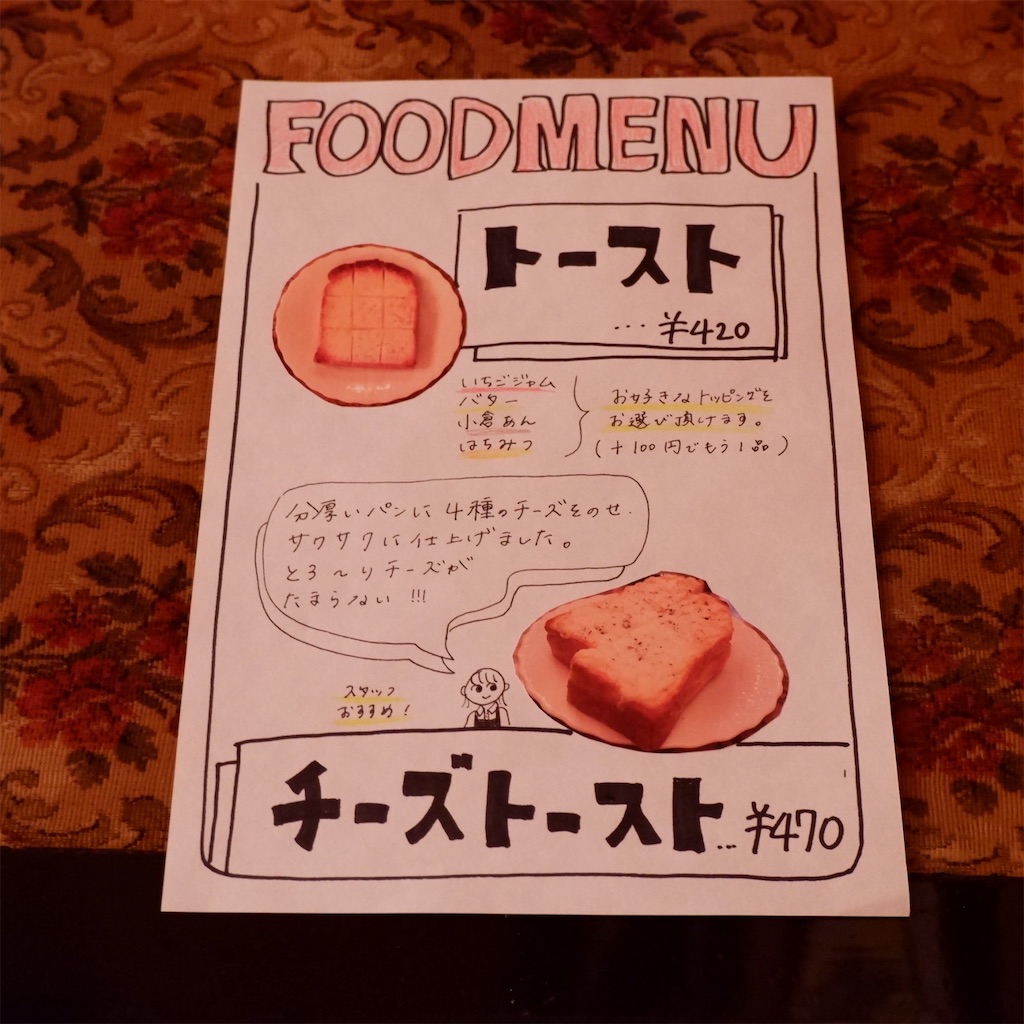 FOOD MENU
トースト
… ¥420
いちごジャム
バター
小倉あん
はちみつ
お好きなトッピングを
お選び頂けます。
(+100円でもう1品)
分厚いパンに4種のチーズをのせ、
サクサクに仕上げました。
とろ〜りチーズが
たまらない!!!
スタッフ
おすすめ!
チーズトースト… ¥470